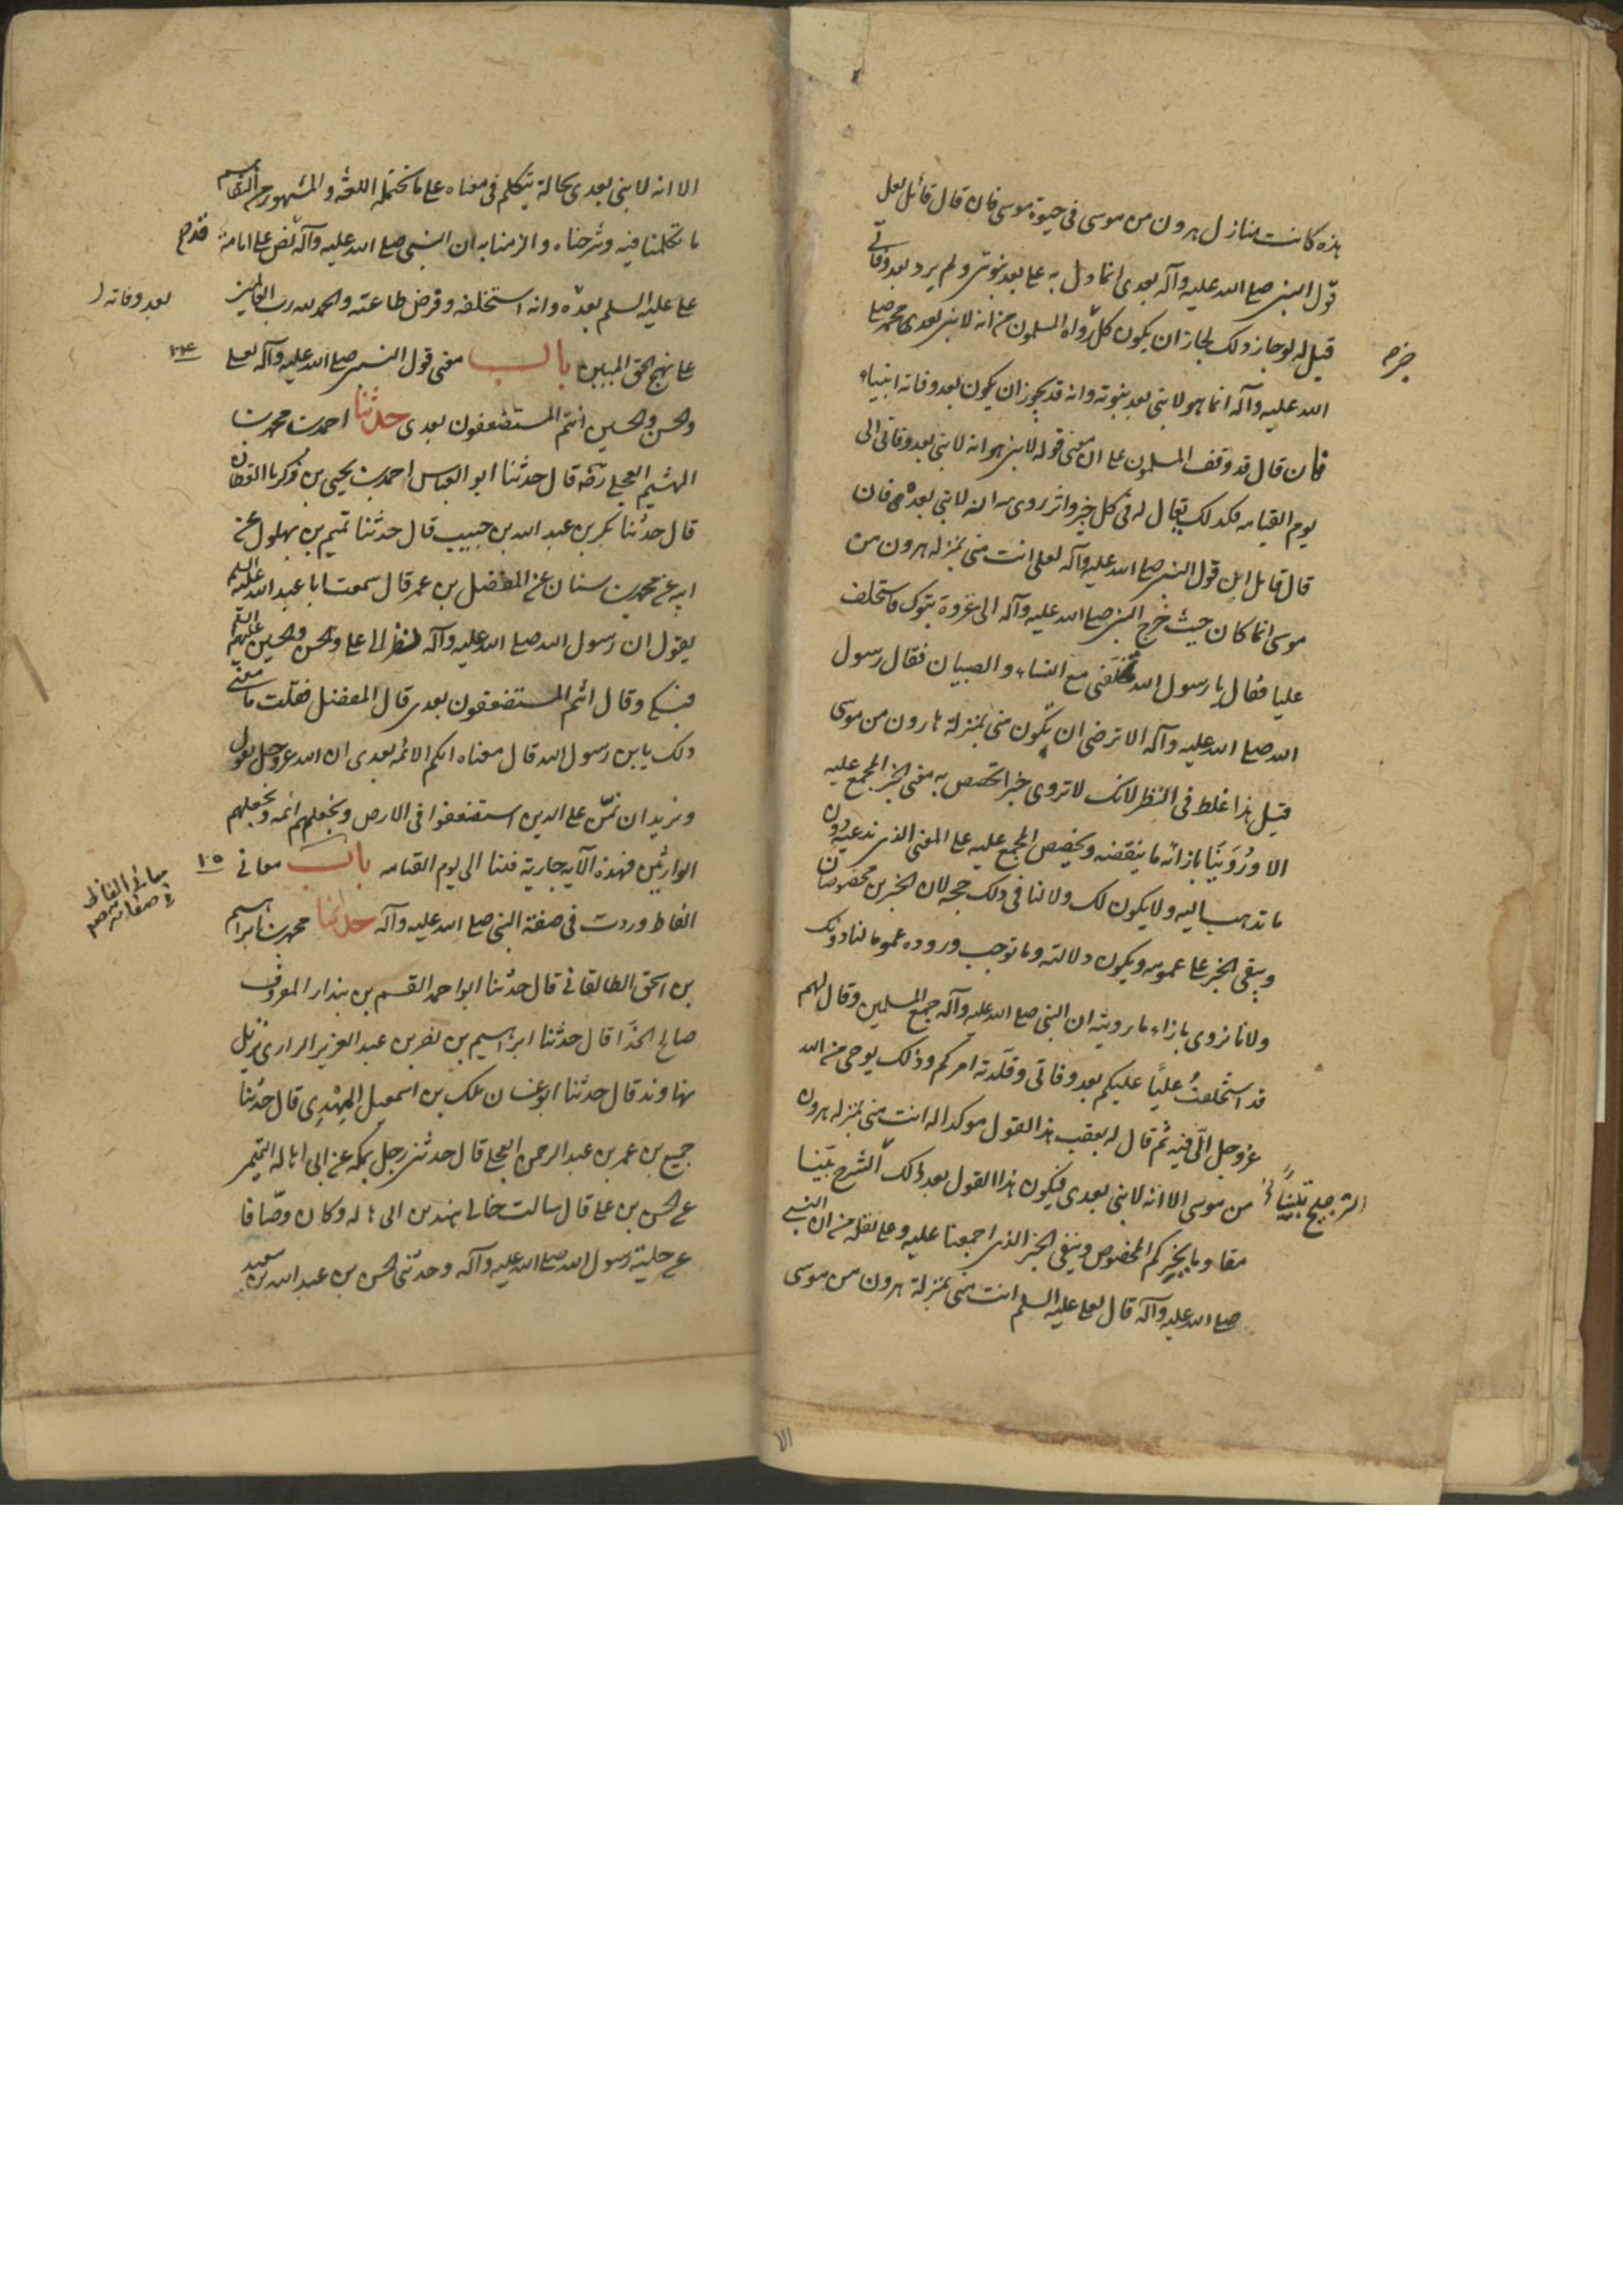 هذه كانت منازل هرون من موسى فى حيوة موسى فان قال قائل لعل
قول النبى صلى الله عليه وآله بعدى انما دل به على بعد نبوتى ولم يرد بعد وفاتى
قيل له لو جاز ذلك لجاز ان يكون كل رواه المسلمون من انه لا نبى بعدى محمد صلى
خبره
الله عليه وآله انما هو لا نبى بعد نبوته وانه قد يجوز ان يكون بعد وفاته انبياء
فان قال قد وقف المسلمون على ان معنى قوله لا نبى هو انه لا نبى بعد وفاتى الى
يوم القيامه فكذلك يقال له فى كل خبر واثر روى انه لا نبى بعده فان
قال قائل ان قول النبى صلى الله عليه وآله لعلى انت منى بمنزله هرون من
موسى انما كان حيث خرج النبى صلى الله عليه وآله الى غزوة تبوك فاستخلف
عليا فقال يا رسول الله تخلفنى مع النساء والصبيان فقال رسول
الله صلى الله عليه وآله الا ترضى ان تكون منى بمنزلة هارون من موسى
قيل هذا غلط فى النظر لانك لا تروى خبرا تخصص به معنى الخبر المجمع عليه
الا ورُوَينَا بازائه ما ينقضه ويخصص المجمع عليه على المعنى الذى ندعيه دون
ما تذهب اليه ولا يكون لك ولا لنا فى ذلك حجه لان الخبرين مخصوصان
ويبقى الخبر على عمومه ويكون دلالته وما توجب وروده عموما لنا دونك
ولانا نروى بازاء ما رويته ان النبى صلى الله عليه وآله جمع المسلمين وقال لهم
قد استخلفتُ عليًا عليكم بعد وفاتى وقلدته امركم وذلك بوحى من الله
عز وجل الىّ فيه ثم قال له بعقب هذا القول موكدا له انت منى بمنزله هرون
من موسى الا انه لا نبى بعدى فيكون هذا القول بعد ذلك الشرح بيّنا
مقاوما لخبركم المخصوص ويبقى الخبر الذى اجمعنا عليه وعلى نقله من ان النبى
صلى الله عليه وآله قال لعلى عليه السلم انت منى بمنزلة هرون من موسى
الا
الا انه لا نبى بعدى بحالة يتكلم فى معناه على ما تحتمله اللغة والمشهور من التقاسيم
ما تكلمنا فيه وشرحناه والزمنا به ان النبى صلى الله عليه وآله نص على امامة
على عليه السلم بعده وانه استخلفه وفرض طاعته والحمد لله رب العالمين
بعد وفاته
على نهج الحق المبين باب معنى قول النبى صلى الله عليه وآله لعلى
والحسن والحسين انتم المستضعفون بعدى حدثنا احمد بن محمد بن
الهشيم العجلى رضه قال حدثنا ابو العباس احمد بن يحيى بن زكريا القطان
قال حدثنا بكر بن عبد الله بن حبيب قال حدثنا تميم بن بهلول عن
ابيه عن محمد بن سنان عن المفضل بن عمر قال سمعت ابا عبد الله عليه السلم
يقول ان رسول الله صلى الله عليه وآله نظر الى على والحسن والحسين عليهم السلم
فبكى وقال انتم المستضعفون بعدى قال المفضل فقلت ما معنى
ذلك يا بن رسول الله قال معناه انكم الائمه بعدى ان الله عز وجل يقول
ونريد ان نمنّ على الذين استضعفوا فى الارض ونجعلهم ائمه ونجعلهم
الوارثين فهذه الآيه جارية فينا الى يوم القيامه باب معانى
١٠٥
معانى الفاظ
الفاظ وردت فى صفة النبى صلى الله عليه وآله حدثنا محمد بن ابراهيم
بن اسحق الطالقانى قال حدثنا ابو احمد القسم بن بندار المعروف
صالح الحذا قال حدثنا ابراهيم بن نصر بن عبد العزيز الرازى نزيل
نهاوند قال حدثنا ابو غسان ملك بن اسمعيل النهدى قال حدثنا
جميع بن عمر بن عبد الرحمن العجلى قال حدثنى رجل بمكه عن ابن ابى هاله التميمى
عن الحسن بن على قال سالت خالى هند بن ابى هاله وكان وصّافا
عن حلية رسول الله صلى الله عليه وآله وحدثنى الحسن بن عبد الله بن سعيد